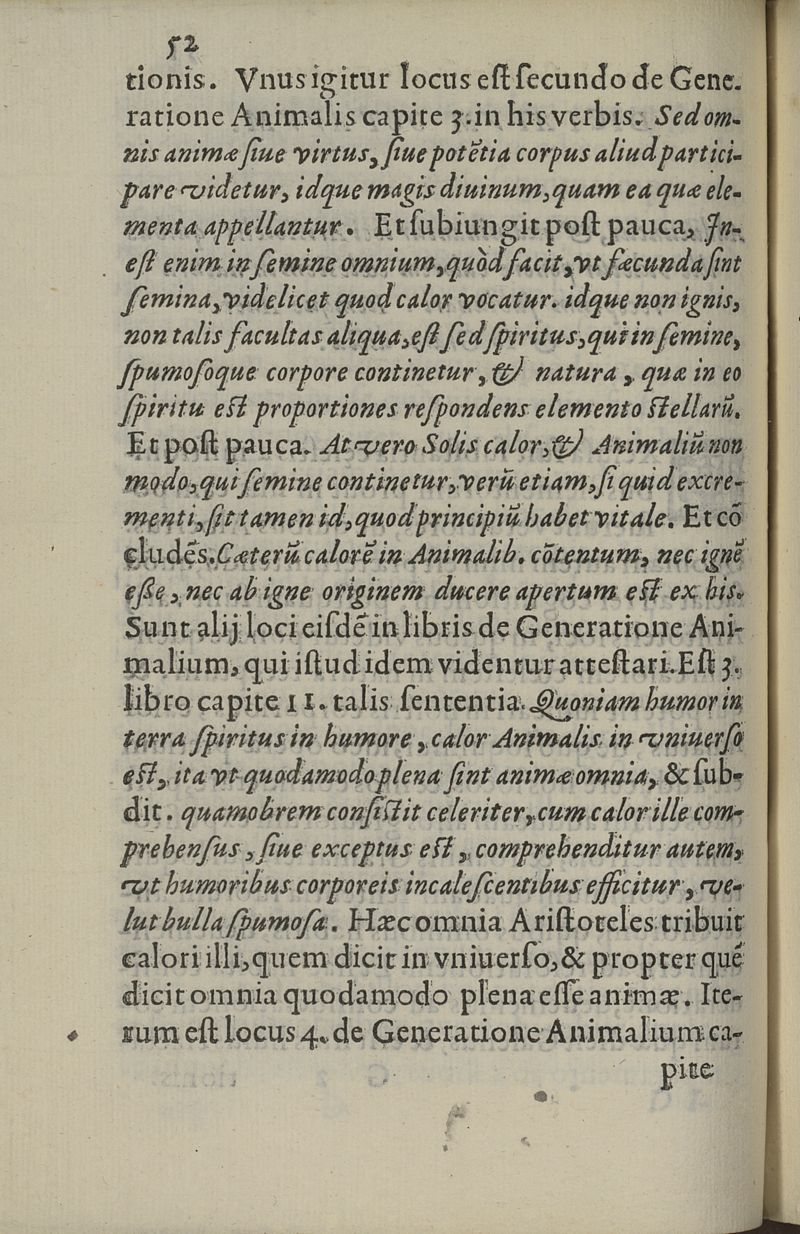 52
tionis. Vnus igitur locus eſt ſecundo de Gene-
ratione Animalis capite 3. in his verbis. Sed om-
nis animæ ſiue virtus, ſiue potẽtia corpus aliud partici-
pare videtur, idque magis diuinum, quam ea quæ ele-
menta appellantur. Et ſubiungit poſt pauca, In-
eſt enim in ſemine omnium, quòd facit, vt fæcunda ſint
ſemina, videlicet quod calor vocatur. idque non ignis,
non talis facultas aliqua, eſt ſed ſpiritus, qui in ſemine,
ſpumoſoque corpore continetur, & natura, quæ in eo
ſpiritu eſt proportiones reſpondens elemento ſtellarũ.
Et poſt pauca. At vero Solis calor, & Animaliũ non
modo, qui ſemine continetur, verũ etiam, ſi quid excre-
menti, ſit tamen id, quod principiũ habet vitale. Et cõ
cludẽs. Cæterũ calorẽ in Animalib. cõtentum, nec ignẽ
eſſe, nec ab igne originem ducere apertum eſt ex his.
Sunt alij loci eiſdẽ in libris de Generatione Ani-
malium, qui iſtud idem videntur atteſtari. Eſt 3.
libro capite 11. talis ſententia. Quoniam humor in
terra ſpiritus in humore, calor Animalis in vniuerſo
eſt, ita vt quodamodo plena ſint animæ omnia, & ſub-
dit. quamobrem conſiſtit celeriter, cum calor ille com-
prehenſus, ſiue exceptus eſt, comprehenditur autem,
vt humoribus corporeis incaleſcentibus efficitur, ve-
lut bulla ſpumoſa. Hæc omnia Ariſtoteles tribuit
calori illi, quem dicit in vniuerſo, & propter quẽ
dicit omnia quodamodo plena eſſe animæ. Ite-
rum eſt locus 4. de Generatione Animalium ca-
pite